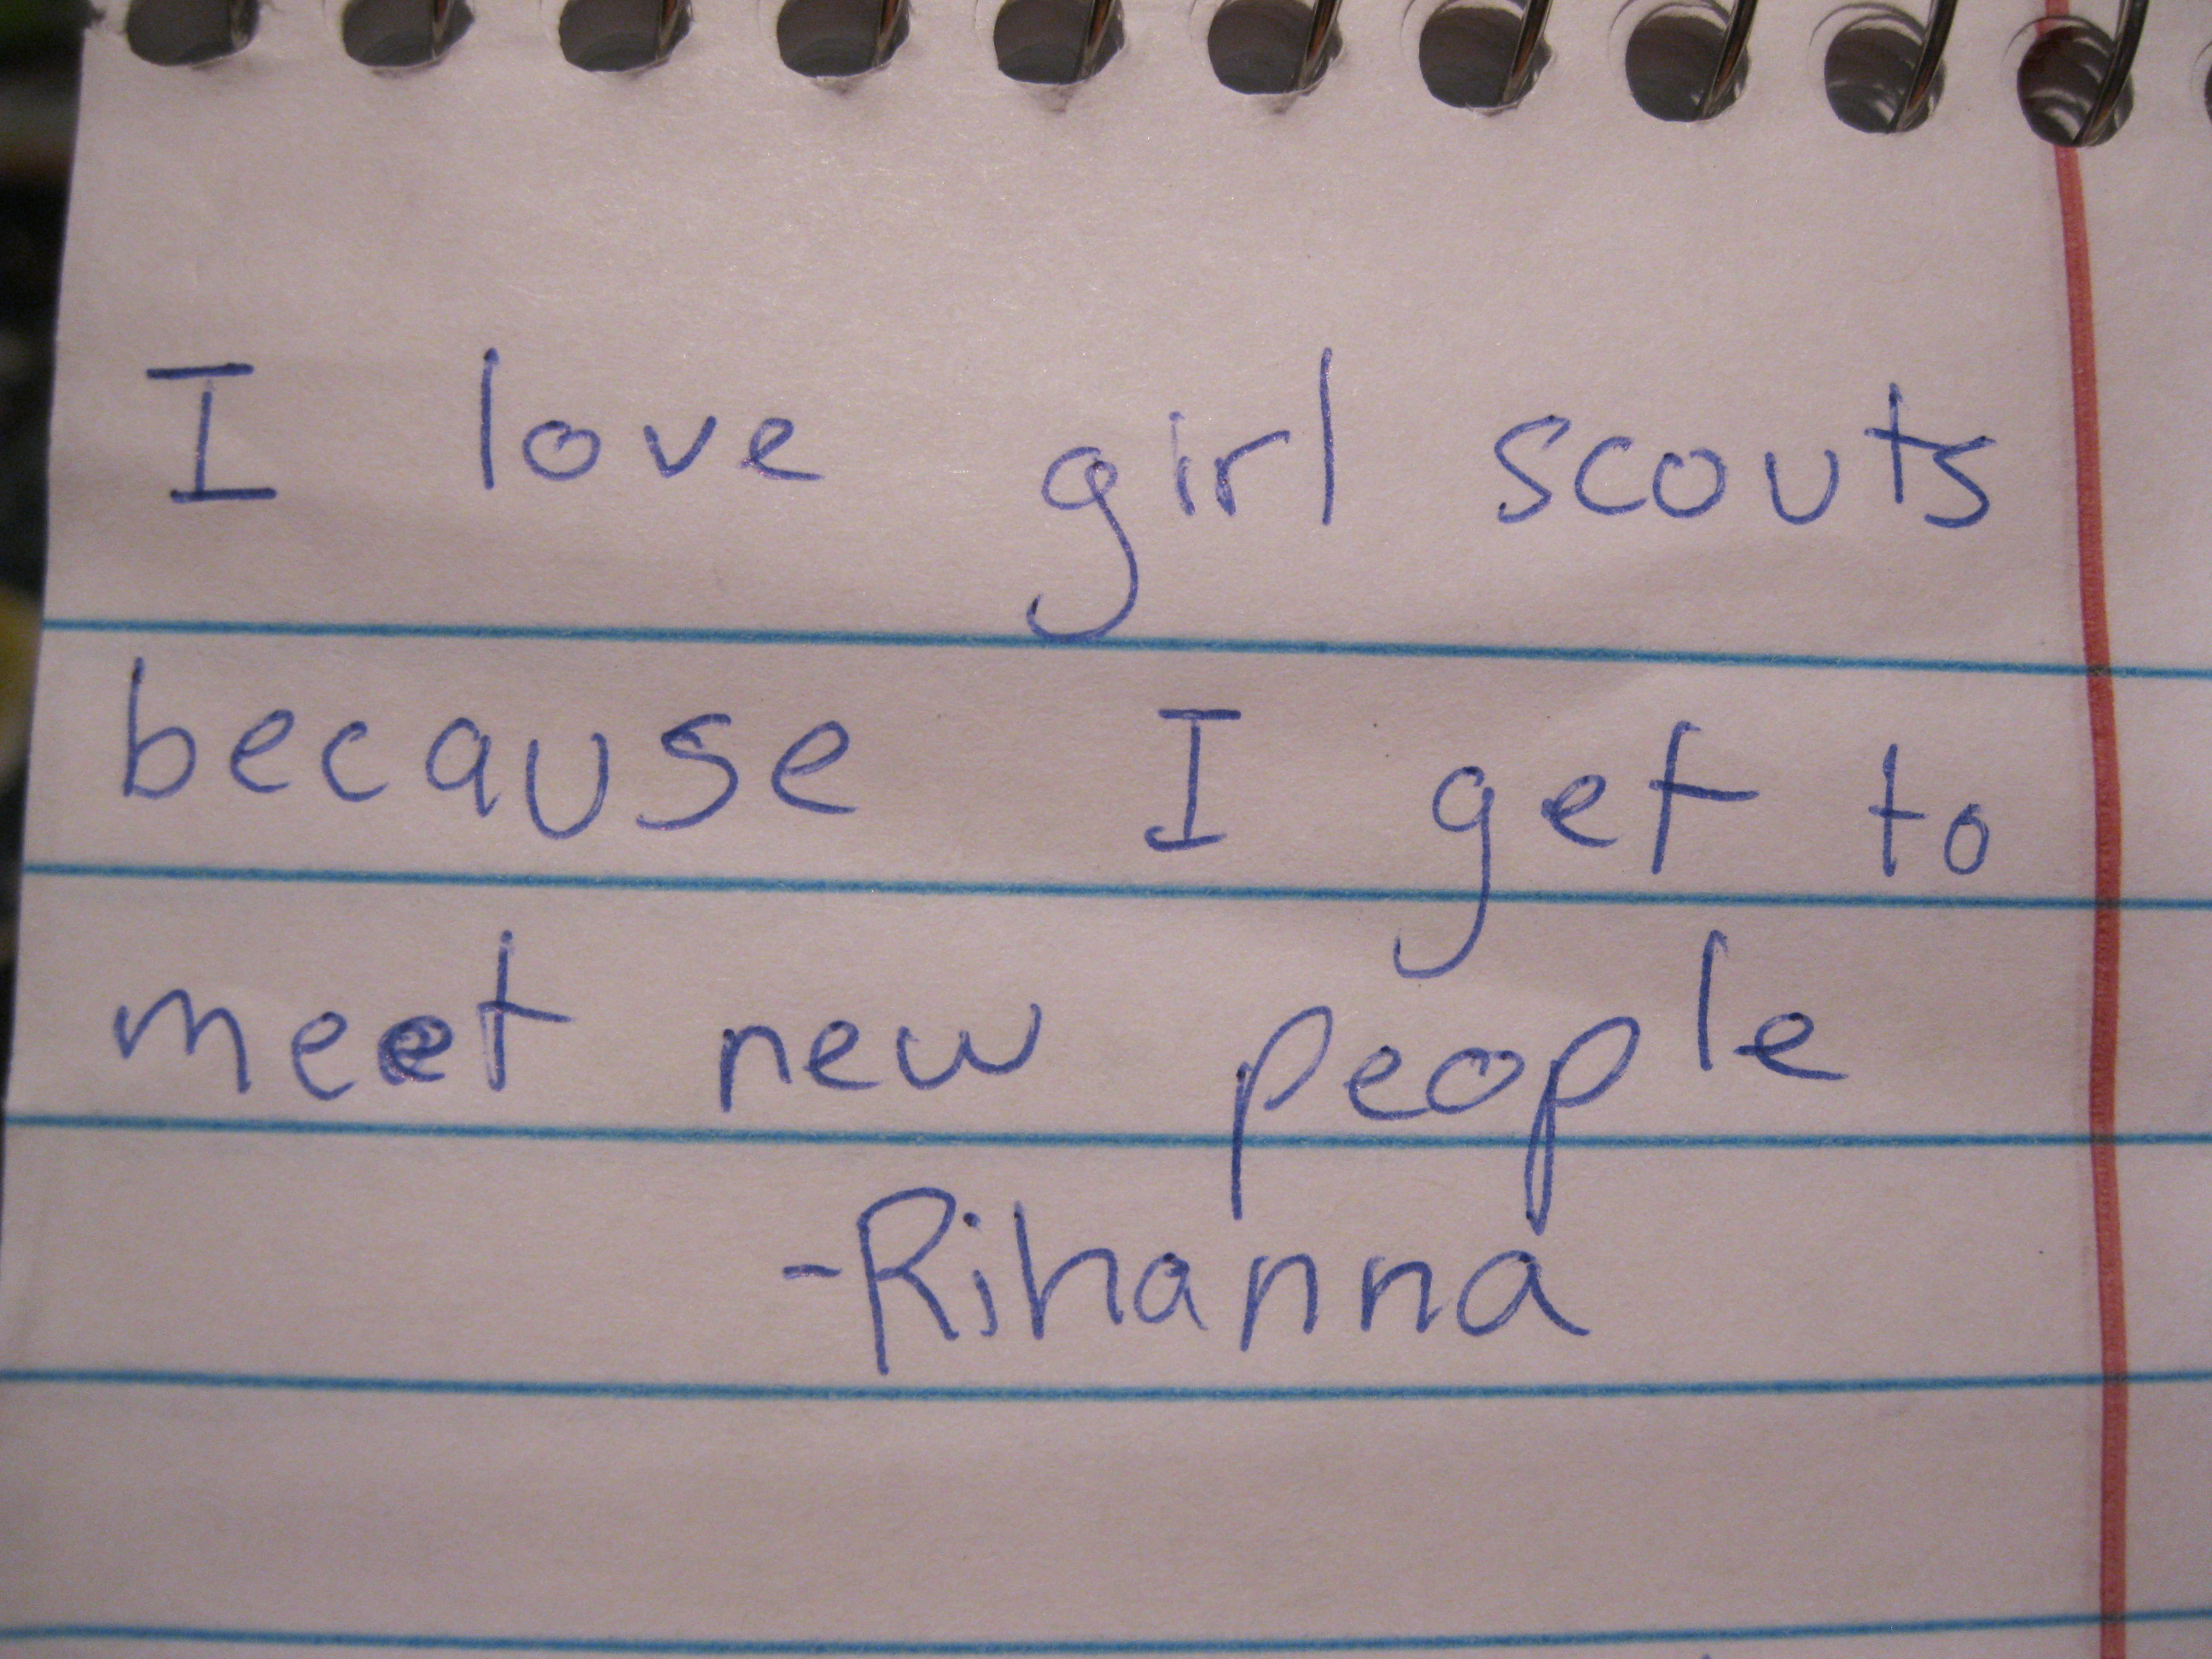 I love girl scouts
because I get to
meet new people
-Rihanna